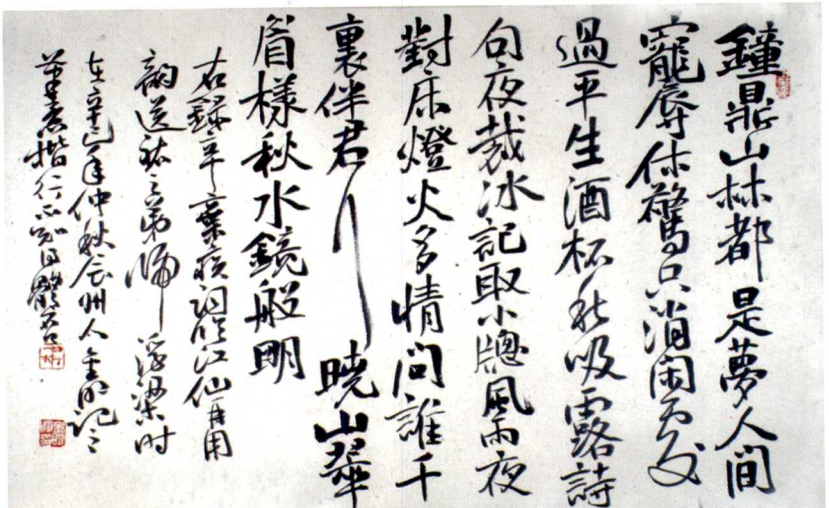 鐘鼎山林都是夢人間
寵辱休驚只消閑處
過平生酒杯秋吸露詩
句夜裁冰記取小牕風雨夜
對床燈火多情問誰千
裏伴君行曉山翠
眉樣秋水鏡般明
右錄辛棄疾詞臨江仙再用
韻送祐之弟歸浮梁時
在辛巳年仲秋州人記之
楷行不知